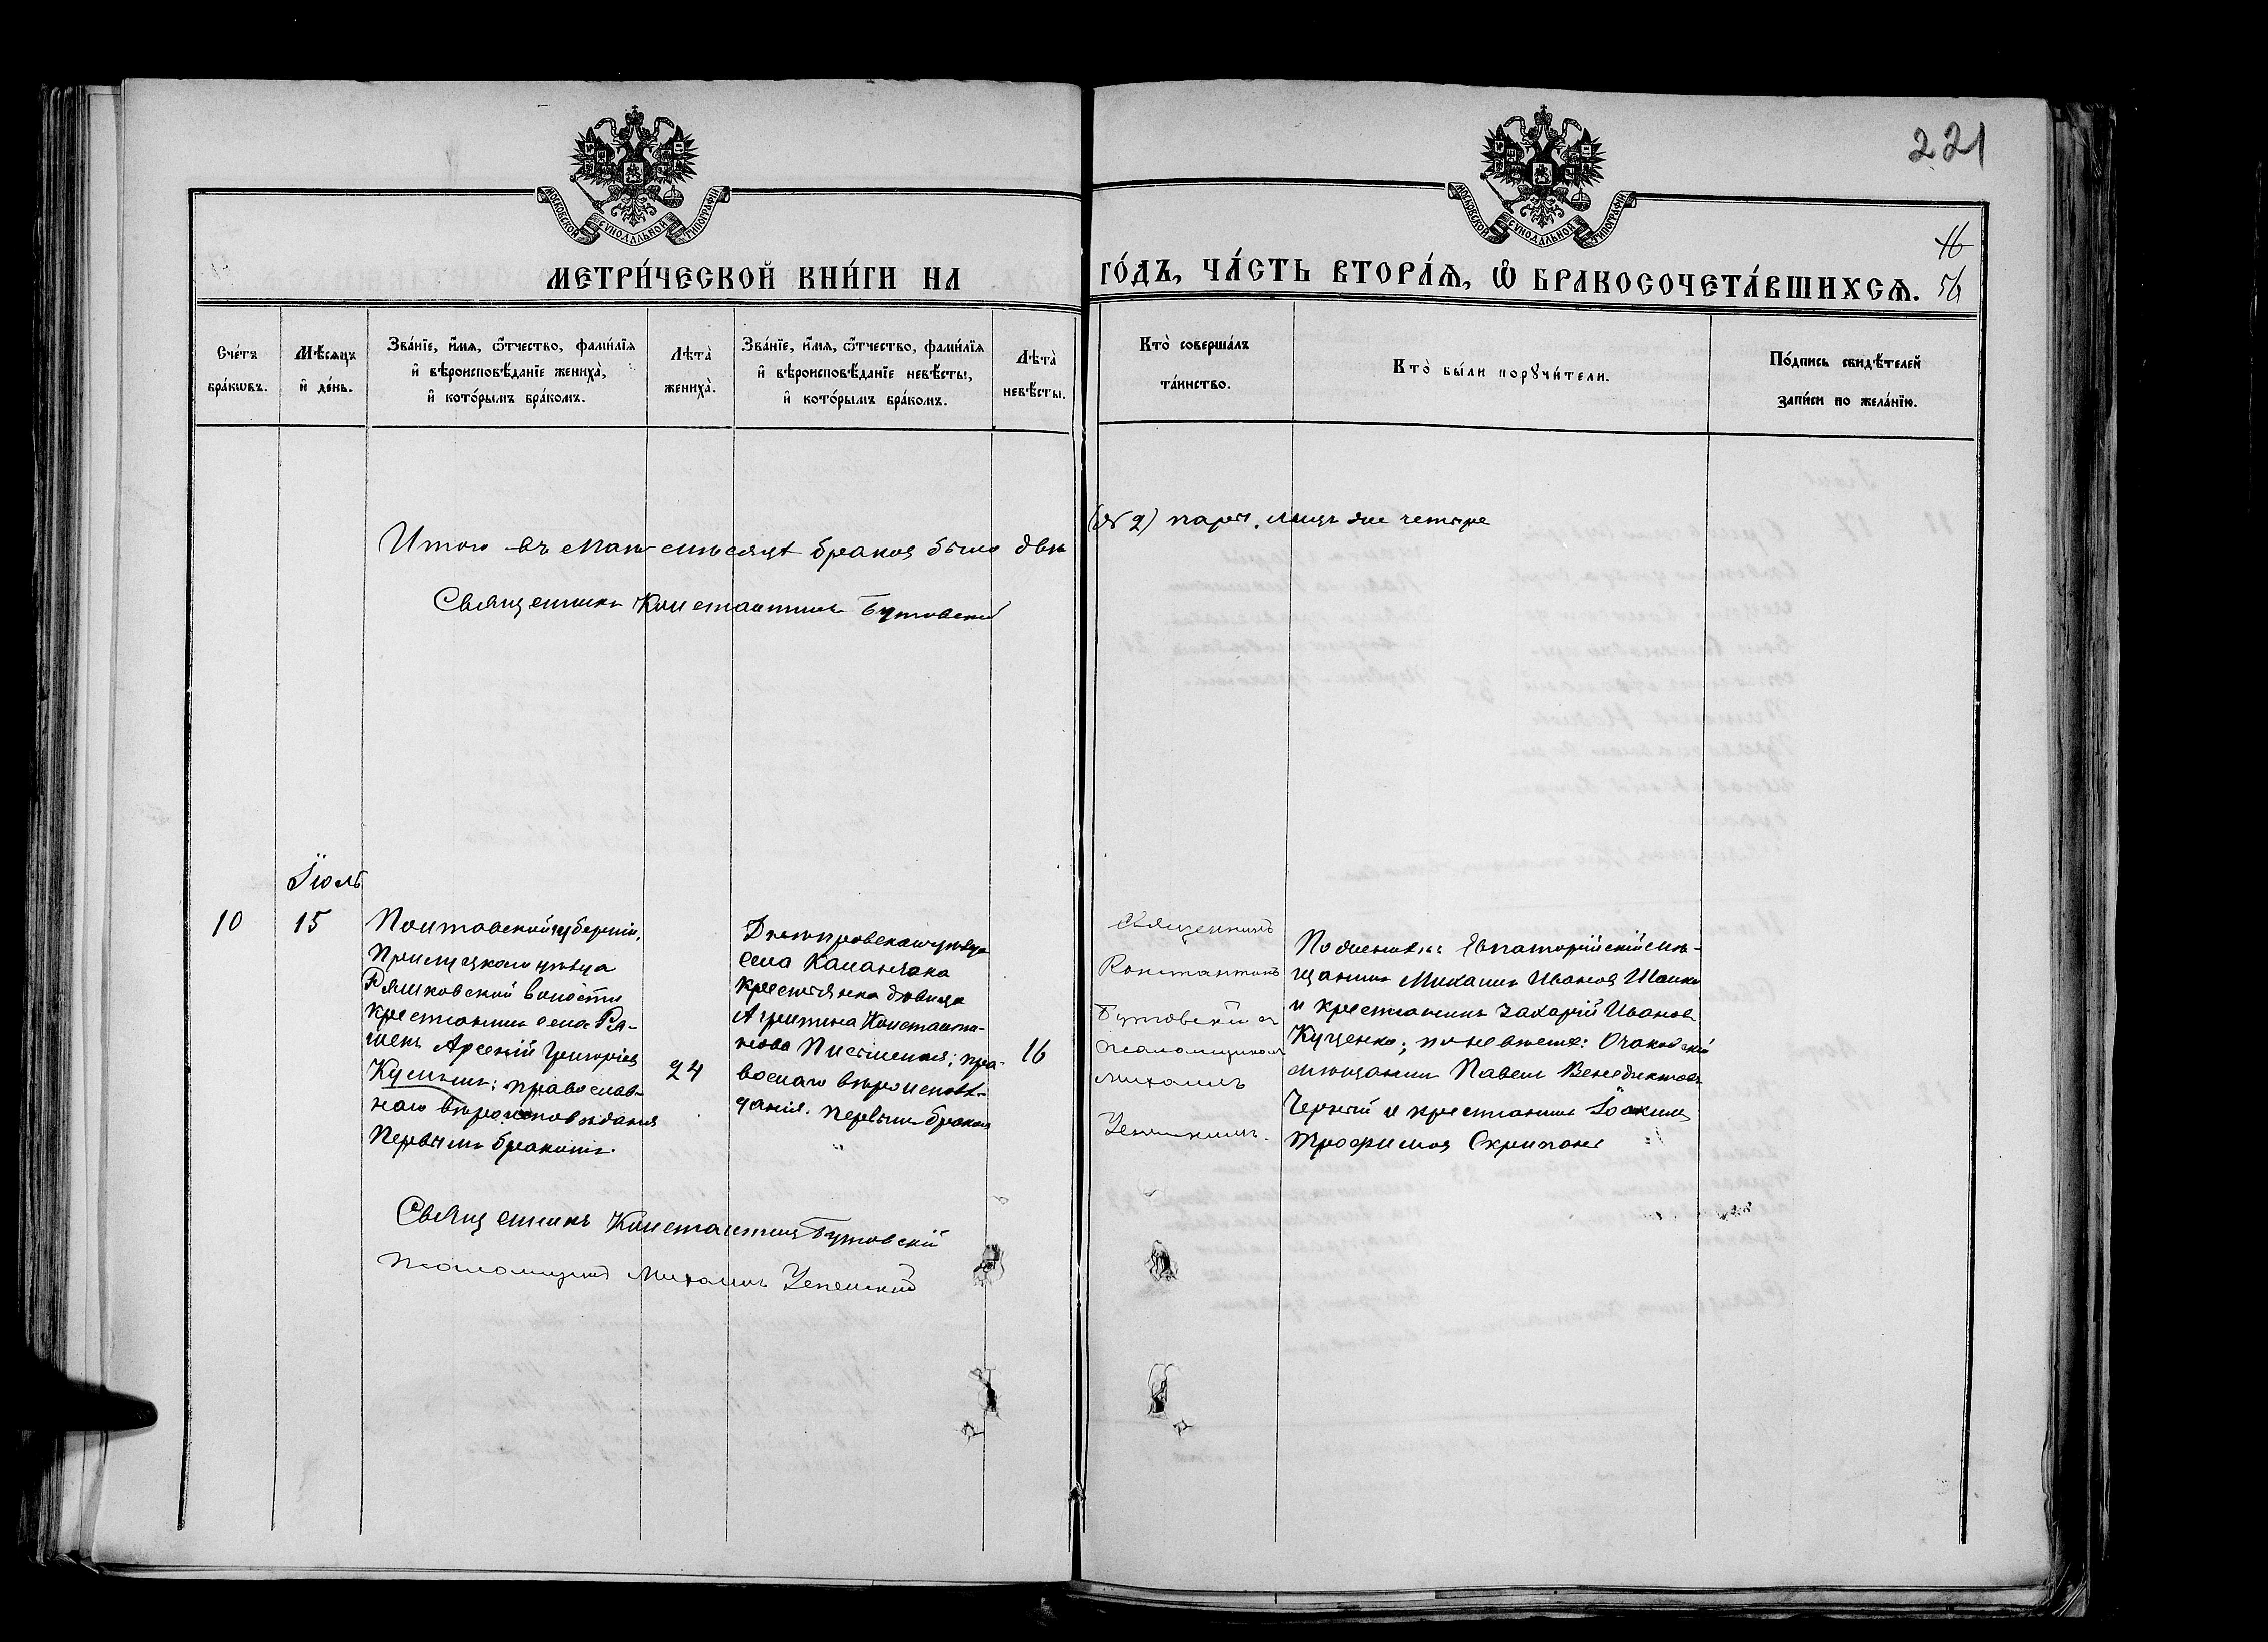 221
16
56
МОСКОВСКОЙ СѴНОДАЛЬНОЙ ТИПОГРАФІИ
МОСКОВСКОЙ СѴНОДАЛЬНОЙ ТИПОГРАФІИ
МЕТРИ́ЧЕСКОЙ КНИ́ГИ НА
ГО́ДЪ, ЧА́СТЬ ВТОРА́Ѧ, Ѽ БРАКОСОЧЕТА́ВШИХСѦ.
Сче́тъ
бра́кѡвъ.
Мѣ́сѧцъ
и҆ де́нь.
Зва́нїе, и҆́мѧ, ѻ҆́тчество, фами́лїѧ
и҆ вѣроисповѣ́данїе жениха̀,
и҆ кото́рымъ бра́комъ.
Лѣта̀
жениха̀.
Зва́нїе, и҆́мѧ, ѻ҆́тчество, фами́лїѧ
и҆ вѣроисповѣ́данїе невѣ́сты,
и҆ кото́рымъ бра́комъ.
Лѣта̀
невѣ́сты.
Кто̀ соверша́лъ
та́инство.
Кто̀ бы́ли порꙋчи́тели.
По́дпись свидѣ́телей
за́писи по жела́нїю.
Итого въ Маѣ мѣсяцѣ браковъ было два
(№ 2) лицъ же четыре
Священникъ Константинъ Бутовскій
Іюль
10
15
Полтавской губерніи,
Прилуцкаго уѣзда
Ряшковской волости
крестьянинъ села Ря-
шекъ Арсеній Григоріевъ
православ-
наго вѣроисповѣданія
Первымъ бракомъ.
24
Днѣпровскаго уѣзда
села Каланчака
крестьянка дѣвица
Агрипина Константи-
нова пра-
вослаго вѣроисповѣ-
данія. Первымъ бракомъ
16
Священникъ
Константинъ
Бутовскій съ
псаломщикомъ
Михаиломъ
По женихѣ: Евпаторійскій мѣ-
щанинъ Михаилъ Ивановъ
и крестьянинъ Захарій Ивановъ
Куценко; по невѣстѣ: Очаковскій
мѣщанинъ Павелъ Венедиктовъ
Черный и крестьянинъ Іоакимъ
Трофимовъ
Священникъ Константинъ Бутовскій
псаломщикъ Михаилъ